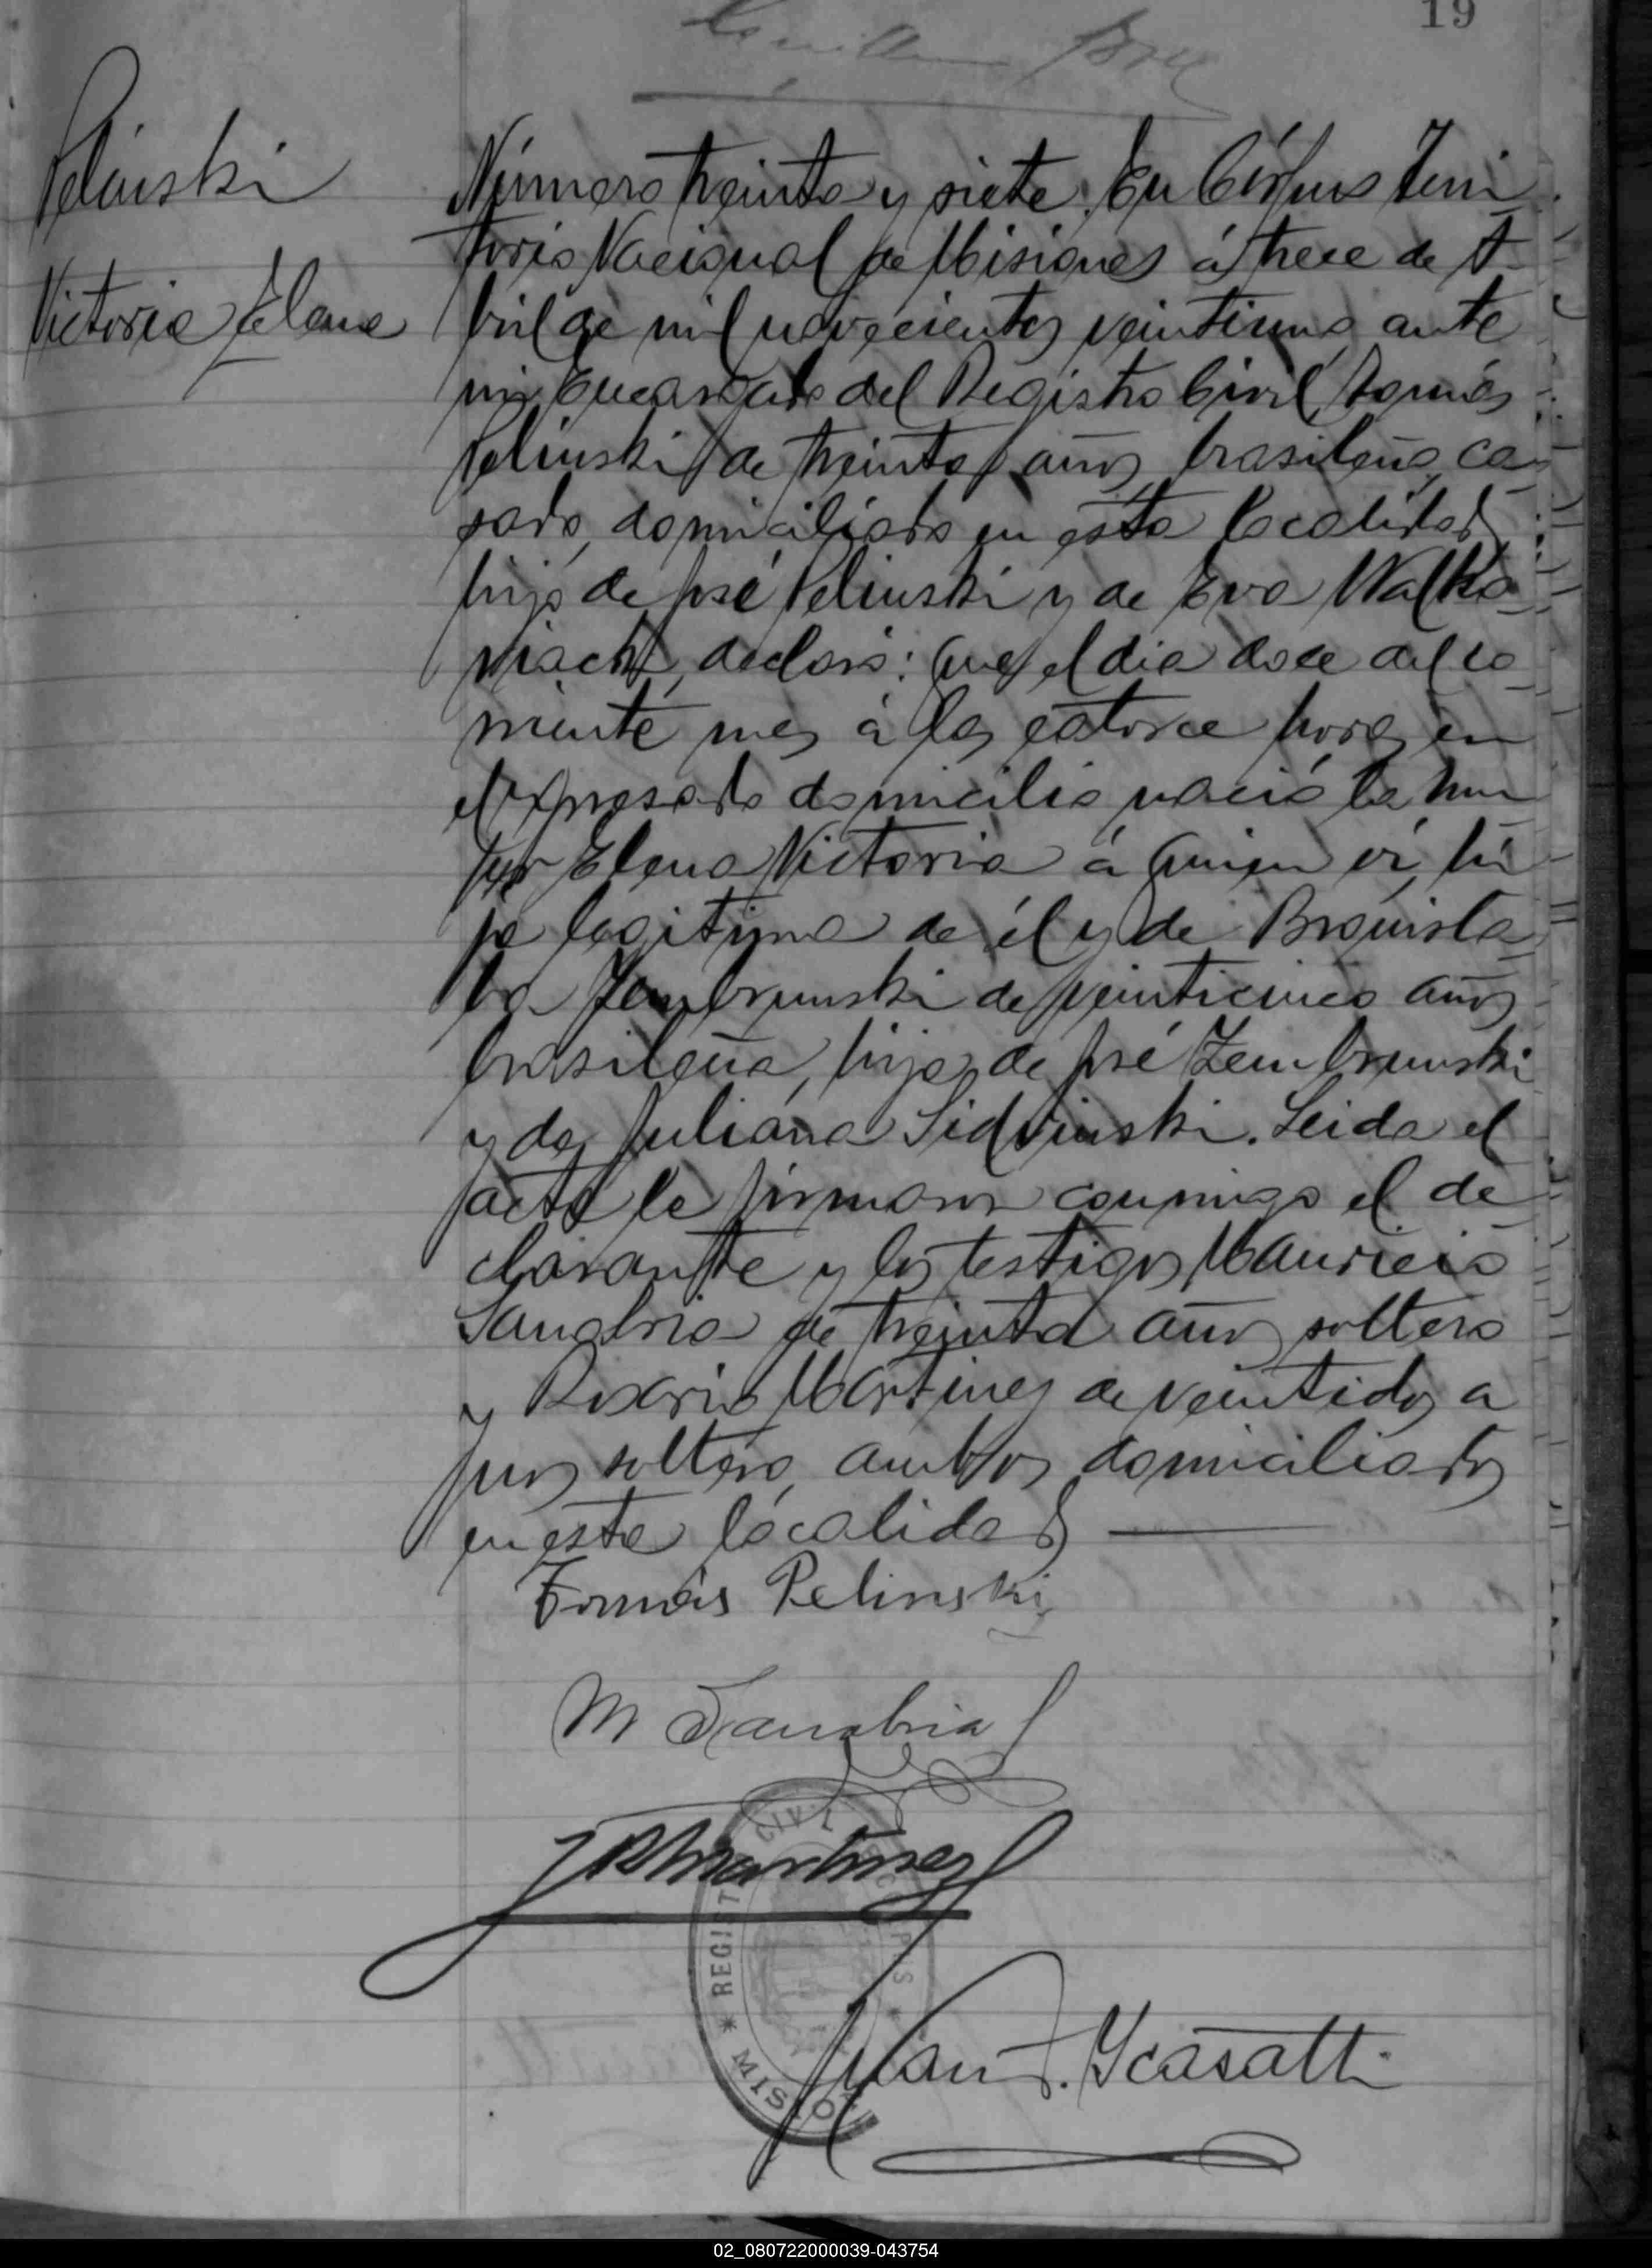 19
Pelinski
Victoria Elena
Número treinta y siete. En Córpus Terri
torio Nacional de Misiones á trece de A
bril de mil novecientos veintiuno ante
mi Encargado del Registro Civil, Tomás
Pelinski de treinta años, brasileño, ca
sado, domiciliado en ésta localidad
hijo de José Pelinski y de Eva Walko
viach, declaró: Que el dia doce del co
rriente mes á las catorce horas en
el expresado domicilio nació la mu
jer Elena Victoria á quien ví, hi
ja legitima de él y de Bronisla
va Zembrunski de veinticinco años
brasileña, hija de José Zembrunski
y de Juliana Sidvinski. Leida el
acta la firmaron conmigo el de
clarante y los testigos Mauricio
Sanabria de treinta años soltero
y Rosario Martinez de veintidos a
ños soltero, ambos domiciliados
en esta localidad
Tomás Pelinski
M Sanabria
JRMartinez
REGISTRO CIVIL CORPUS * MISIONES *
Juan F. Ycasatti
02_080722000039-043754